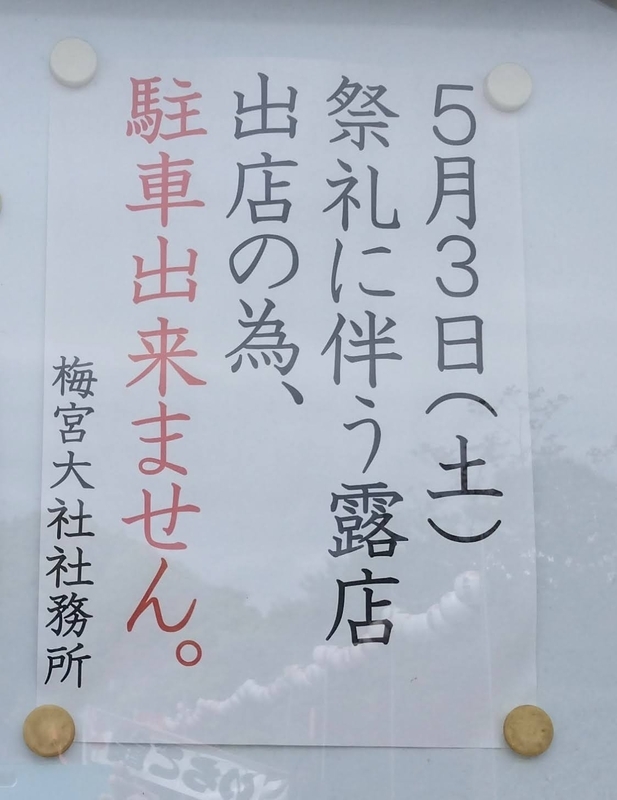 5月3日(土)
祭礼に伴う露店
出店の為、
駐車出来ません。
梅宮大社社務所